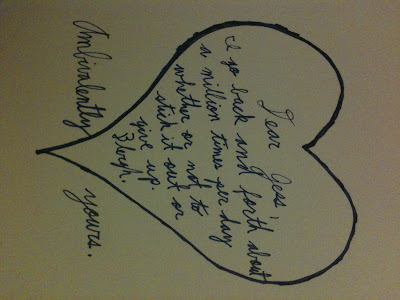 Dear Jess,
I go back and forth about
a million times per day
whether or not to
stick it out or
give up.
Blergh.
Ambivalently yours.